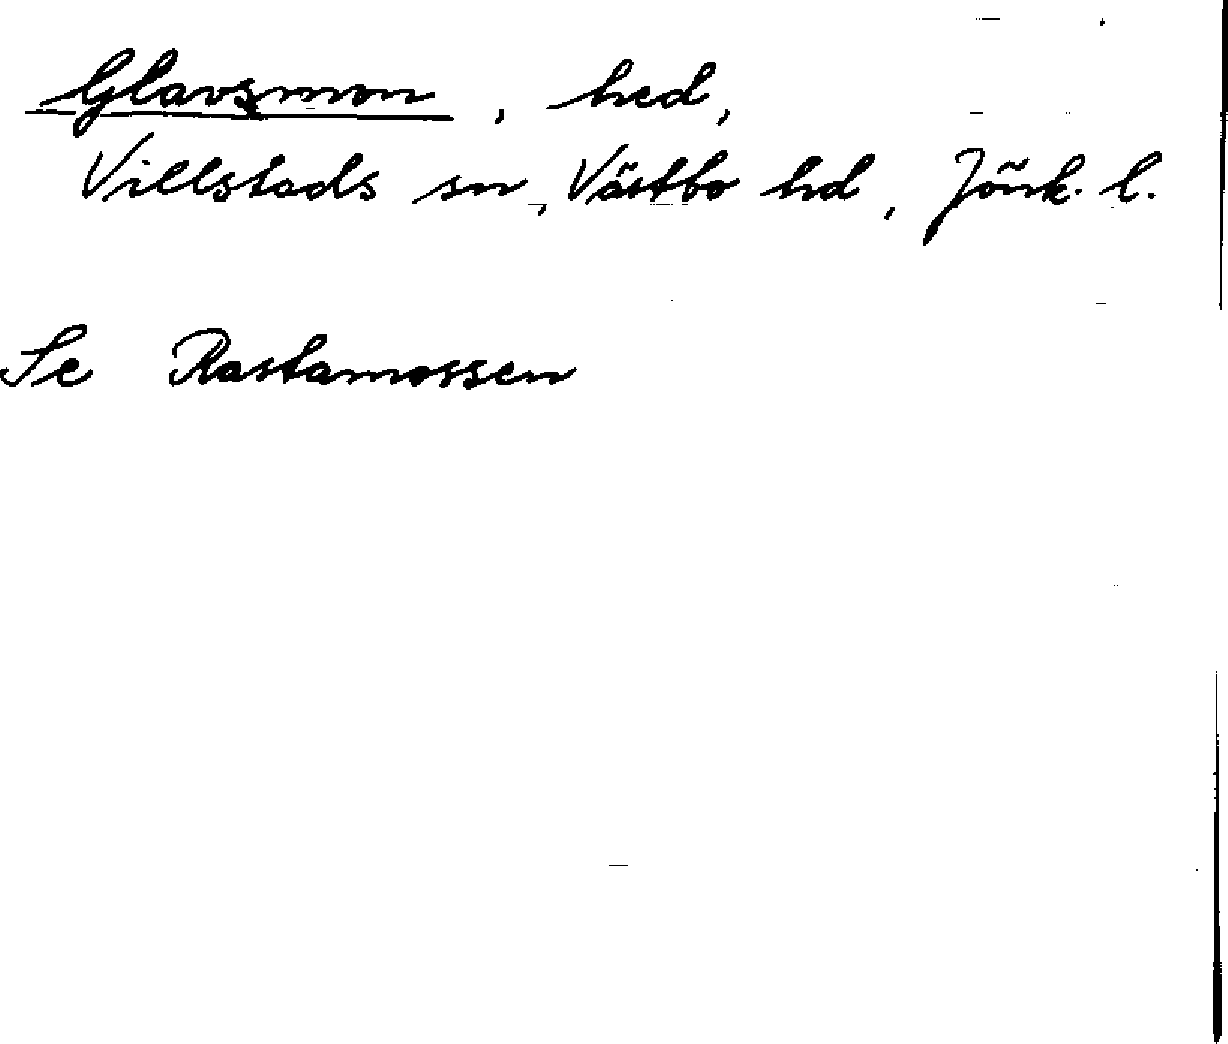 Glavsmon, hed,
Villstads sn, Västbo hd, Jönk. l.
Se Rastamossen